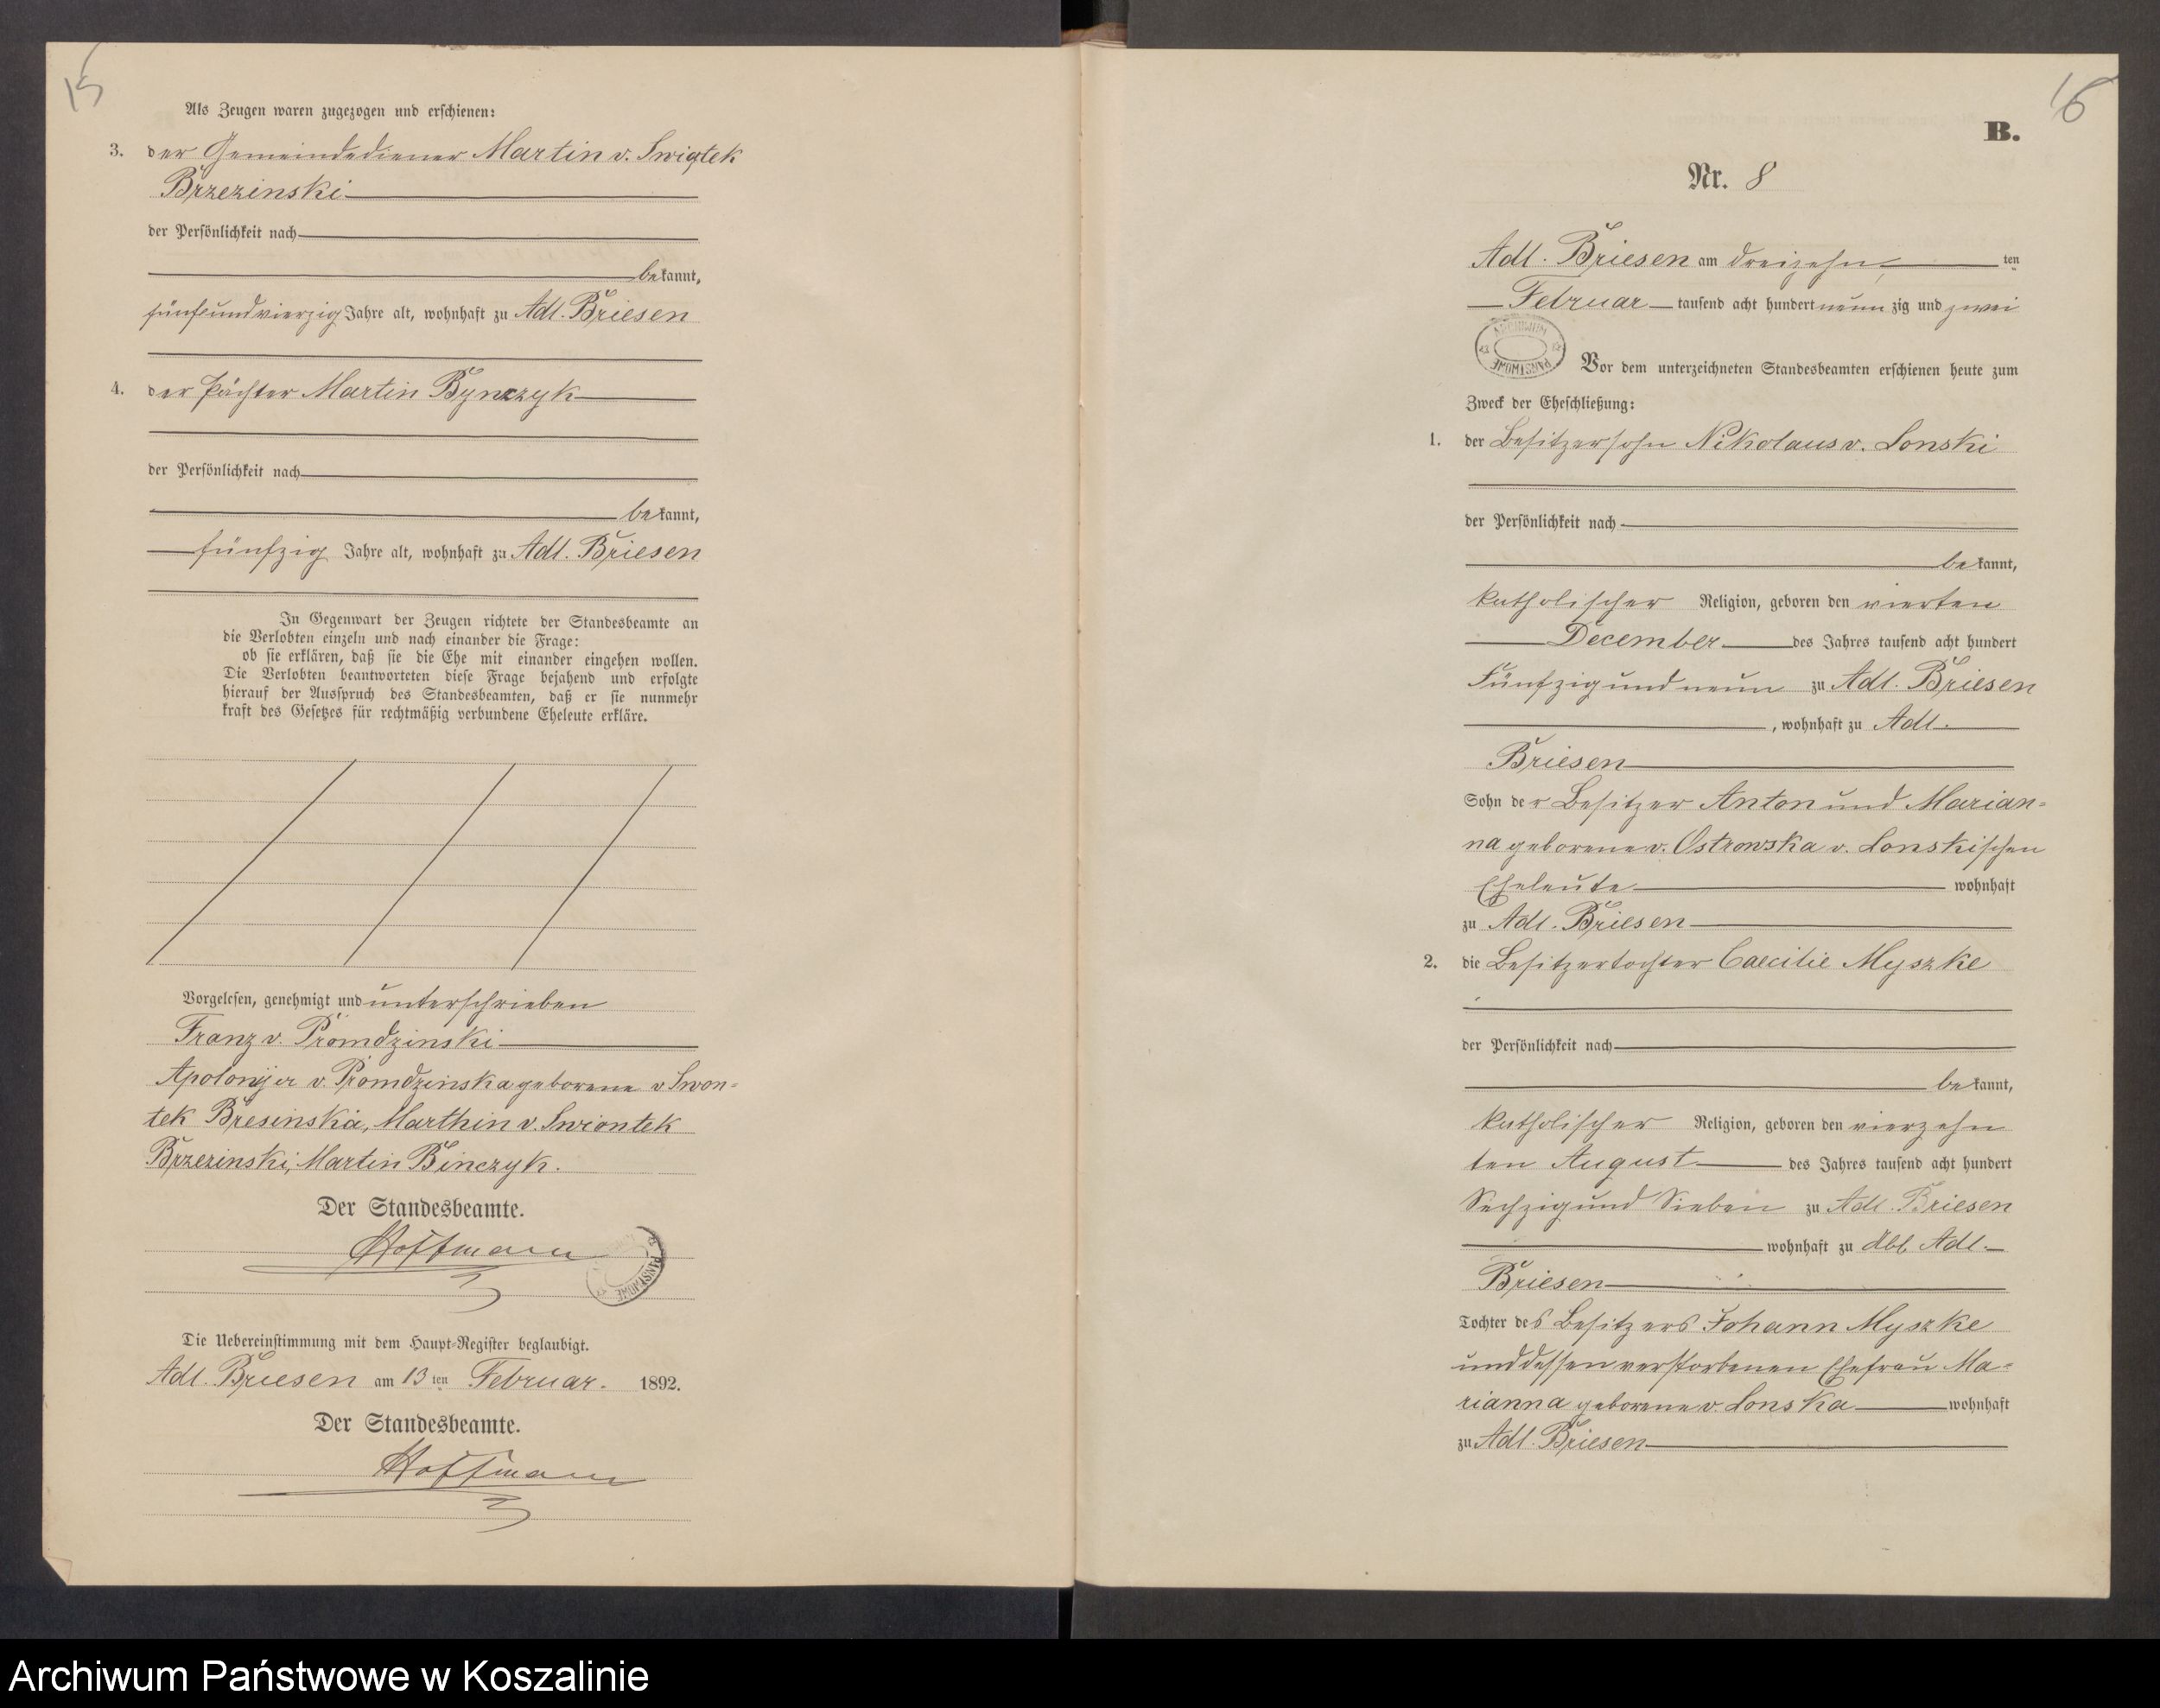 15
Als Zeugen waren zugezogen und erschienen:
3. der Gemeindediener Martin v. Swiątek
Brzezinski
der Persönlichkeit nach
bekannt,
fünfundvierzig Jahre alt, wohnhaft zu Adl. Briesen
4. der Pächter Martin Bynczyk
der Persönlichkeit nach
bekannt,
fünfzig Jahre alt, wohnhaft zu Adl. Briesen
In Gegenwart der Zeugen richtete der Standesbeamte an
die Verlobten einzeln und nach einander die Frage:
ob sie erklären, daß sie die Ehe mit einander eingehen wollen.
Die Verlobten beantworteten diese Frage bejahend und erfolgte
hierauf der Ausspruch des Standesbeamten, daß er sie nunmehr
kraft des Gesetzes für rechtmäßig verbundene Eheleute erkläre.
Vorgelesen, genehmigt und unterschrieben
Franz v. Promdzinski
Apolonija v. Promdzinska geborene v Swon=
tek Bresinska, Marthin v. Swiontek
Brzezinski, Martin Binczyk.
Der Standesbeamte.
Hoffmann
PAŃSTWOWE
Die Uebereinstimmung mit dem Haupt=Register beglaubigt.
Adl. Briesen am 13 ten Februar. 1892.
Der Standesbeamte.
Hoffmann
16
B.
Nr. 8
Adl. Briesen am dreizehn ten
Februar tausend acht hundert neun zig und zwei
ARCHIWUM PAŃSTWOWE
Vor dem unterzeichneten Standesbeamten erschienen heute zum
Zweck der Eheschließung:
1. der Besitzersohn Nikolaus v. Lonski
der Persönlichkeit nach
bekannt,
katholischer Religion, geboren den vierten
December des Jahres tausend acht hundert
Fünfzig und neun zu Adl. Briesen
, wohnhaft zu Adl.
Briesen
Sohn der Besitzer Anton und Marian=
na geborene v. Ostrowska v. Lonskischen
Eheleute wohnhaft
zu Adl. Briesen
2. die Besitzertochter Caecilie Myszke
der Persönlichkeit nach
bekannt,
katholischer Religion, geboren den vierzehn
ten August des Jahres tausend acht hundert
Sechzig und Sieben zu Adl. Briesen
wohnhaft zu Adl.
Briesen
Tochter des Besitzers Johann Myszke
und dessen verstorbenen Ehefrau Ma=
rianna geborene v. Lonska wohnhaft
zu Adl. Briesen
Archiwum Państwowe w Koszalinie